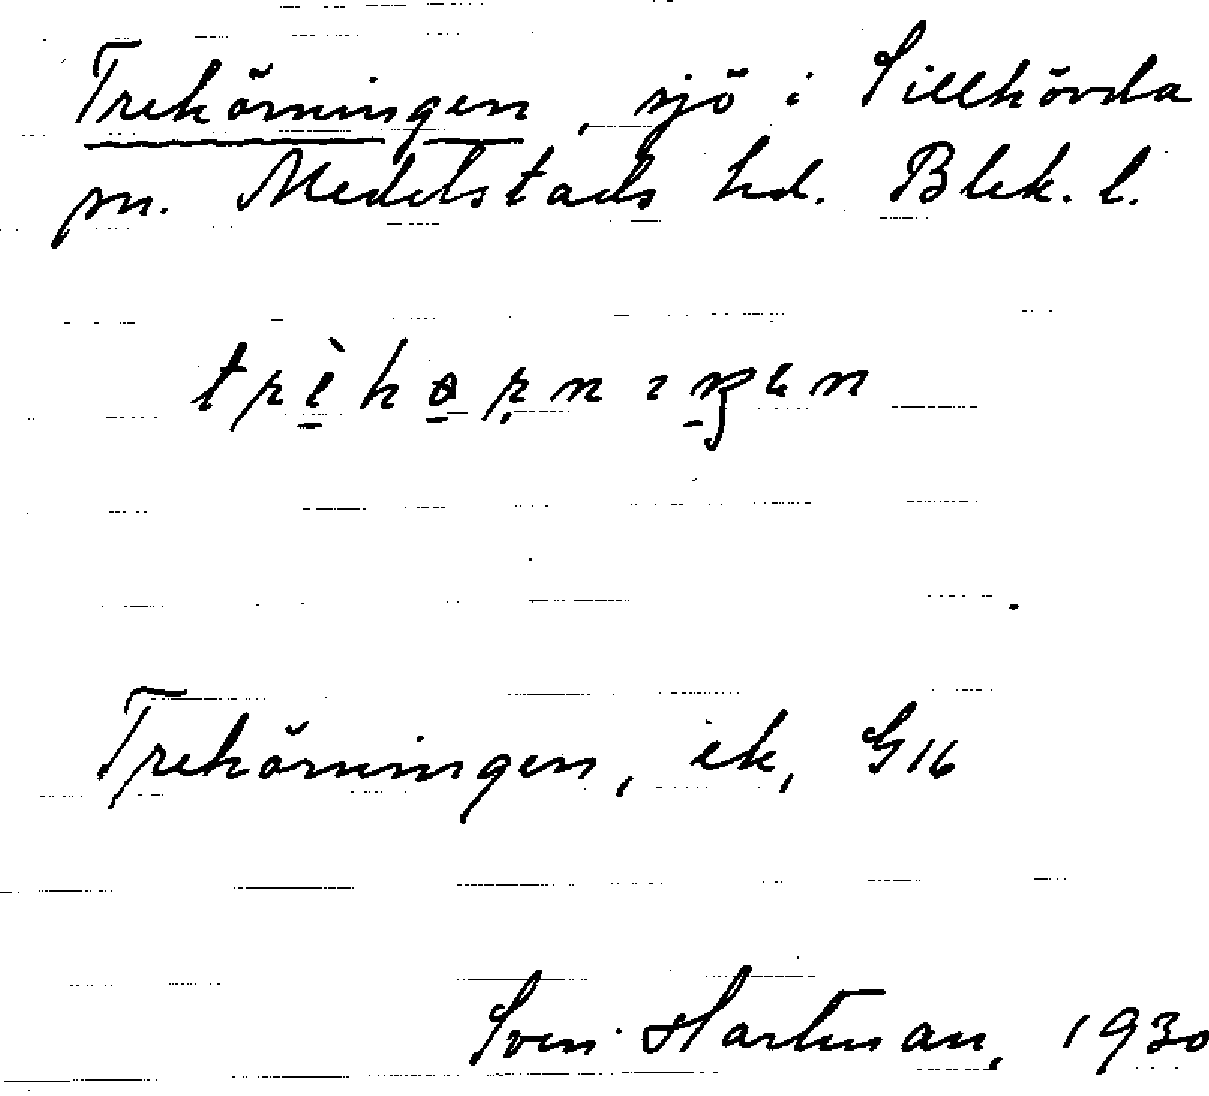 Trehörningen, sjö i Sillhövda
sn. Medelstads hd. Blek. l.
Trehörningen, ek, G16
Sven Hartman, 1930